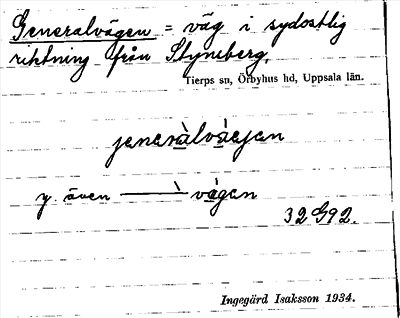 Generalvägen = väg i sydostlig
riktning från Styneberg.
Tierps sn, Örbyhus hd, Uppsala län.
jeneràlvàejan
y. även ——— vàgan
32 G92.
Ingegärd Isaksson 1934.